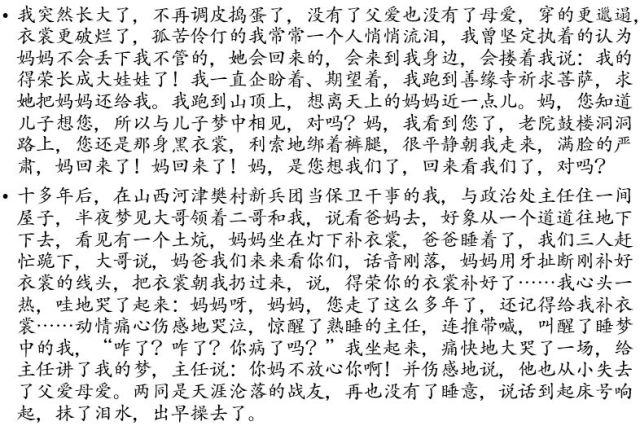 • 我突然长大了，不再调皮捣蛋了，没有了父爱也没有了母爱，穿的更邋遢，
衣裳更破烂了，孤苦伶仃的我常常一个人悄悄流泪，我曾坚定执着的认为
妈妈不会丢下我不管的，她会回来的，会来到我身边，会搂着我说：我的
得荣长成大娃娃了！我一直企盼着、期望着，我跑到善缘寺祈求菩萨，求
她把妈妈还给我。我跑到山顶上，想离天上的妈妈近一点儿。妈，您知道
儿子想您，所以与儿子梦中相见，对吗？妈，我看到您了，老院鼓楼洞洞
路上，您还是那身黑衣裳，利索地绑着裤腿，很平静朝我走来，满脸的严
肃，妈回来了！妈回来了！妈，是您想我们了，回来看我们了，对吗？
• 十多年后，在山西河津樊村新兵团当保卫干事的我，与政治处主任住一间
屋子，半夜梦见大哥领着二哥和我，说看爸妈去，好象从一个道道往地下
下去，看见有一个土炕，妈妈坐在灯下补衣裳，爸爸睡着了，我们三人赶
忙跪下，大哥说，妈爸我们来来看你们，话音刚落，妈妈用牙扯断刚补好
衣裳的线头，把衣裳朝我扔过来，说，得荣你的衣裳补好了……我心头一
热，哇地哭了起来：妈妈呀，妈妈，您走了这么多年了，还记得给我补衣
裳……动情痛心伤感地哭泣，惊醒了熟睡的主任，连推带喊，叫醒了睡梦
中的我，“咋了？咋了？你病了吗？”我坐起来，痛快地大哭了一场，给
主任讲了我的梦，主任说：你妈不放心你啊！并伤感地说，他也从小失去
了父爱母爱。两同是天涯沦落的战友，再也没有了睡意，说话到起床号响
起，抹了泪水，出早操去了。